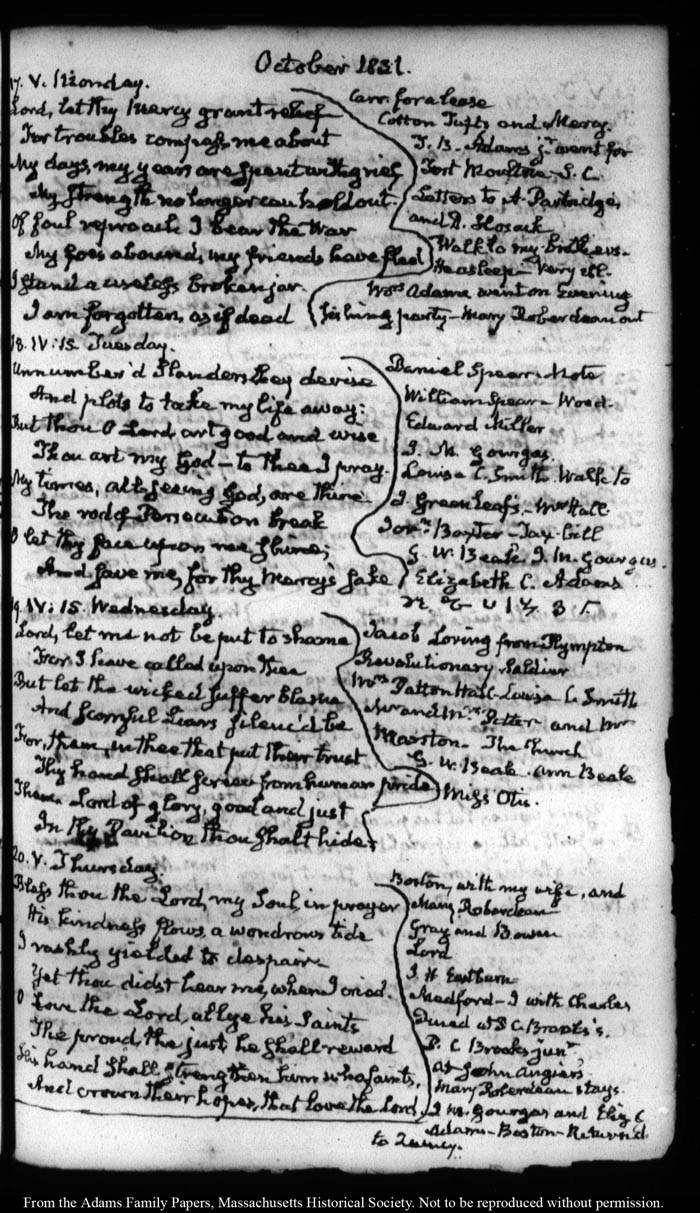 October 1831.
17. V. Monday.
Lord, let thy mercy grant relief
For troubles compass me about
My days, my years are spent with grief
My strength no longer can hold out.
Of foul reproach I bear the War
My foes abound, my friends have fled
I stand a useless broken jar
I am forgotten, as if dead
Carr. for a lease
Cotton Tufts and Mercy.
T. B. Adams jr. went for
Fort Moultrie, S. C.
Letters to A. Partridge,
and D. Hosack
Walk to my brothers.
He asleep — Very ill.
Mrs. Adams went on Evening
fishing party — Mary Roberdeau out
18. IV: 15. Tuesday.
Unnumber'd Slanders they devise
And plots to take my life away:
But thou O Lord art good and wise
Thou art my God — to thee I pray.
My times, all-seeing God, are thine
The rod of Persecution break
O let thy face upon me shine;
And save me, for thy Mercy's sake
Daniel Spear — Note
William Spear — Wood.
Edward Miller
J. M. Gourgas.
Louisa C. Smith. Walk to
J. Greenleaf's — Mrs Hall
Baxter — Tax-bill
G. W. Beale. J. M. Gourgas.
Elizabeth C. Adams
19. IV: 15. Wednesday.
Lord, let me not be put to shame
For I have called upon thee
But let the wicked suffer blame
And scornful Liars silenc'd be
For, them, in thee that put their trust
Thy hand shall screen from human pride
Them Lord of glory, good and just
In thy Pavilion thou shalt hide.
Jacob Loring from Plympton
Revolutionary Soldier
Mrs. Patton Hall — Louisa C. Smith
Mr and Mrs. Potter and Mr
Marston — The Church
G. W. Beale — Ann Beale
Miss Otis.
20. V. Thursday.
Bless thou the Lord, my Soul, in prayer
His kindness flows, a wondrous tide
I rashly yielded to despair
Yet thou didst hear me, when I cried.
O Love the Lord, all ye his Saints
The proud, the just he shall reward
His hand shall strengthen him who faints,
And crown their hopes, that love the Lord.
Boston, with my wife, and
Mary Roberdeau
Gray and Bowen
Lord
J. H. Eastburn
Medford — I with Charles
Dined at P. C. Brooks's.
P. C. Brooks junr,
at John Angiers
Mary Roberdeau stays.
J. M. Gourgas and Eliz. C
Adams — Boston — Return'd
to Quincy.
From the Adams Family Papers, Massachusetts Historical Society. Not to be reproduced without permission.